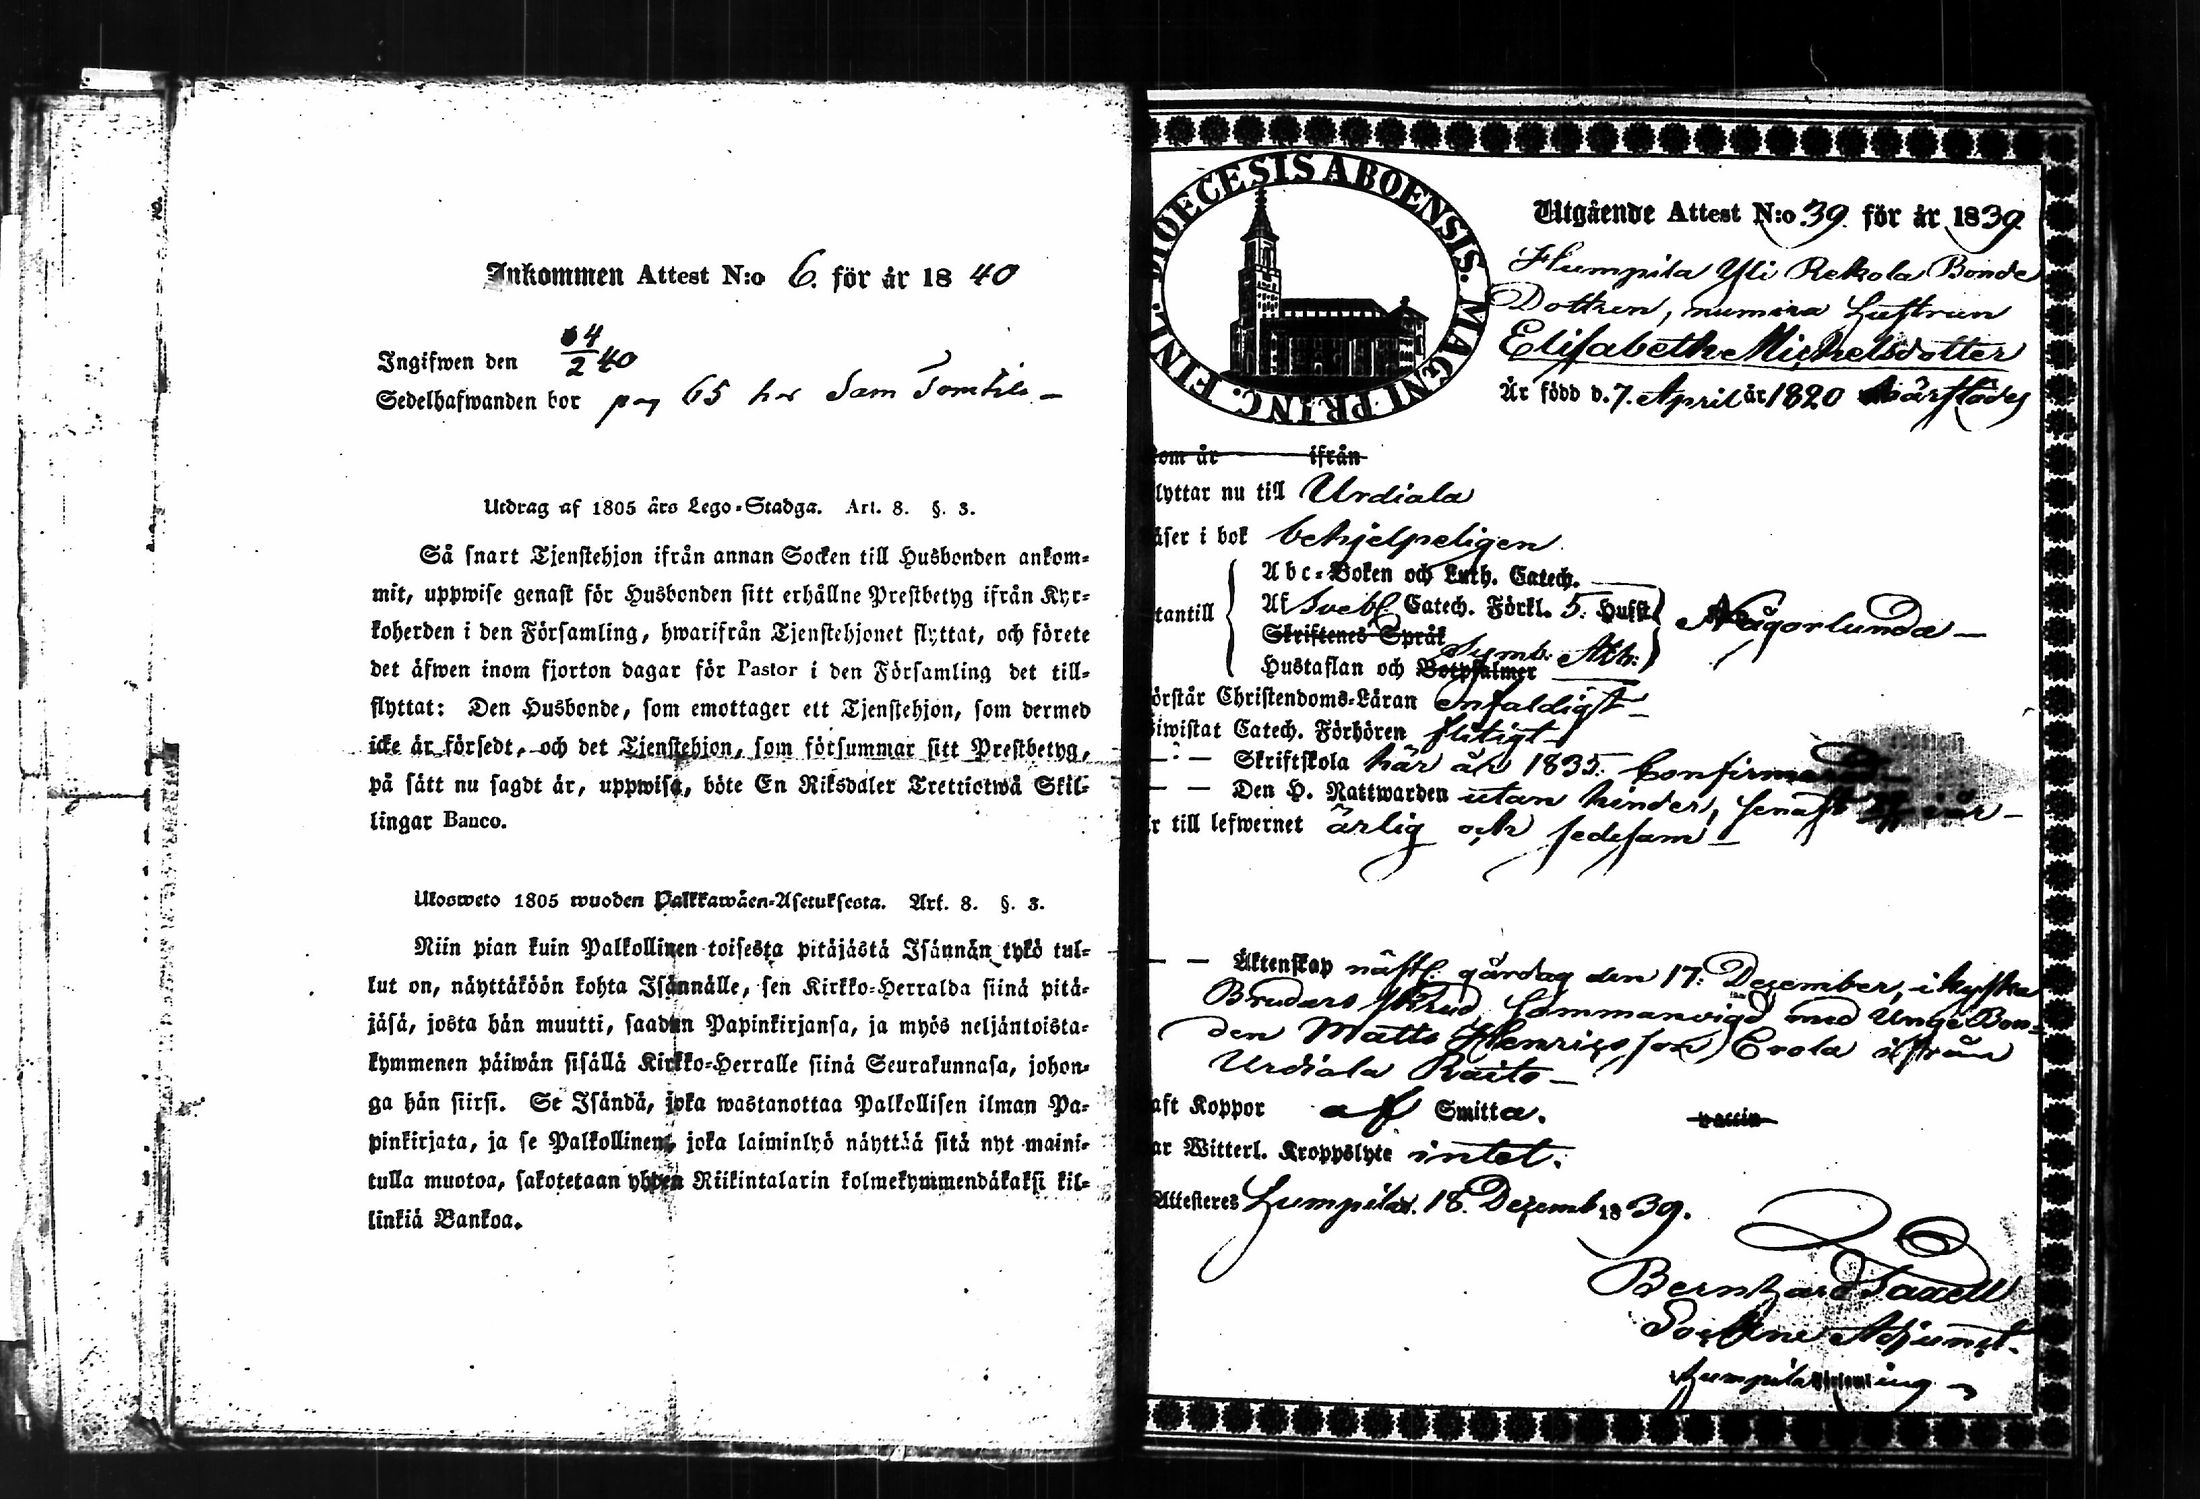 Inkommen Attest N:o 6. för år 1840
Ingifwen den 4/2 40
Sedelhafwanden bor pag 65 hos Sam
Utdrag af 1805 års Lego-Stadga. Art. 8. §. 3.
Så snart Tjenstehjon ifrån annan Socken till Husbonden ankom-
mit, uppwise genast för Husbonden sitt erhållne Prestbetyg ifrån Kyr-
koherden i den Församling, hwarifrån Tjenstehjonet flyttat, och förete
det äfwen inom fjorton dagar för Pastor i den Församling det till-
flyttat: Den Husbonde, som emottager ett Tjenstehjon, som dermed
icke är försedt, och det Tjenstehjon, som försummar sitt Prestbetyg,
på sätt nu sagdt är, uppwisa, böte En Riksdaler Trettiotwå Skil-
lingar Banco.
Ulosweto 1805 wuoden Palkkawäen-Asetuksesta. Art. 8. §. 3.
Niin pian kuin Palkollinen toisesta pitäjästä Isännän tykö tul-
lut on, näyttäköön kohta Isännälle, sen Kirkko-Herralda siinä pitä-
jäsä, josta hän muutti, saadun Papinkirjansa, ja myös neljäntoista-
kymmenen päiwän sisällä Kirkko-Herralle siinä Seurakunnasa, johon-
ga hän siirsi. Se Isändä, joka wastanottaa Palkollisen ilman Pa-
pinkirjata, ja se Palkollinen, joka laiminlyö näyttää sitä nyt maini-
tulla muotoa, sakotetaan yhden Riikintalarin kolmekymmendäkaksi kil-
linkiä Bankoa.
DIOECESIS ABOENSIS. MAGNI PRINC. FINL.
Utgående Attest N:o 39. för år 1839
Humpila Yli Rekola Bonde
Dottren, numera Hustrun
Elisabeth Michelsdotter
Är född d. 7. April år 1820 härstädes
kom år ifrån
flyttar nu till Urdiala
läser i bok behjelpeligen
Abc-Boken och Luth. Catech.
Af Svebl. Catech. Förkl. 5. Hufst.
utantill Någorlunda
Skriftenes Språk
Symb: Ath:
Hustaflan och Botpsalmer
förstår Christendoms-Läran enfaldigt
biwistat Catech. Förhören flitigt
Skriftskola här år 1835. Confirmerad
Den H. Nattwarden utan hinder, senast i år
Är till lefwernet ärlig och sedesam
Äktenskap nästl. gårdag den 17. December, i kyska
Brudars skrud, sammanvigd med Unge Bon-
den Matts Henricsson Erola ifrån
Urdiala Raito
haft Koppor af Smitta. vaccin
har Witterl. Kroppslyte intet.
Attesteres Humpila. 18. Decemb. 1839.
Bernhard Taxell
Sockne Adjunct.
Humpila Församling